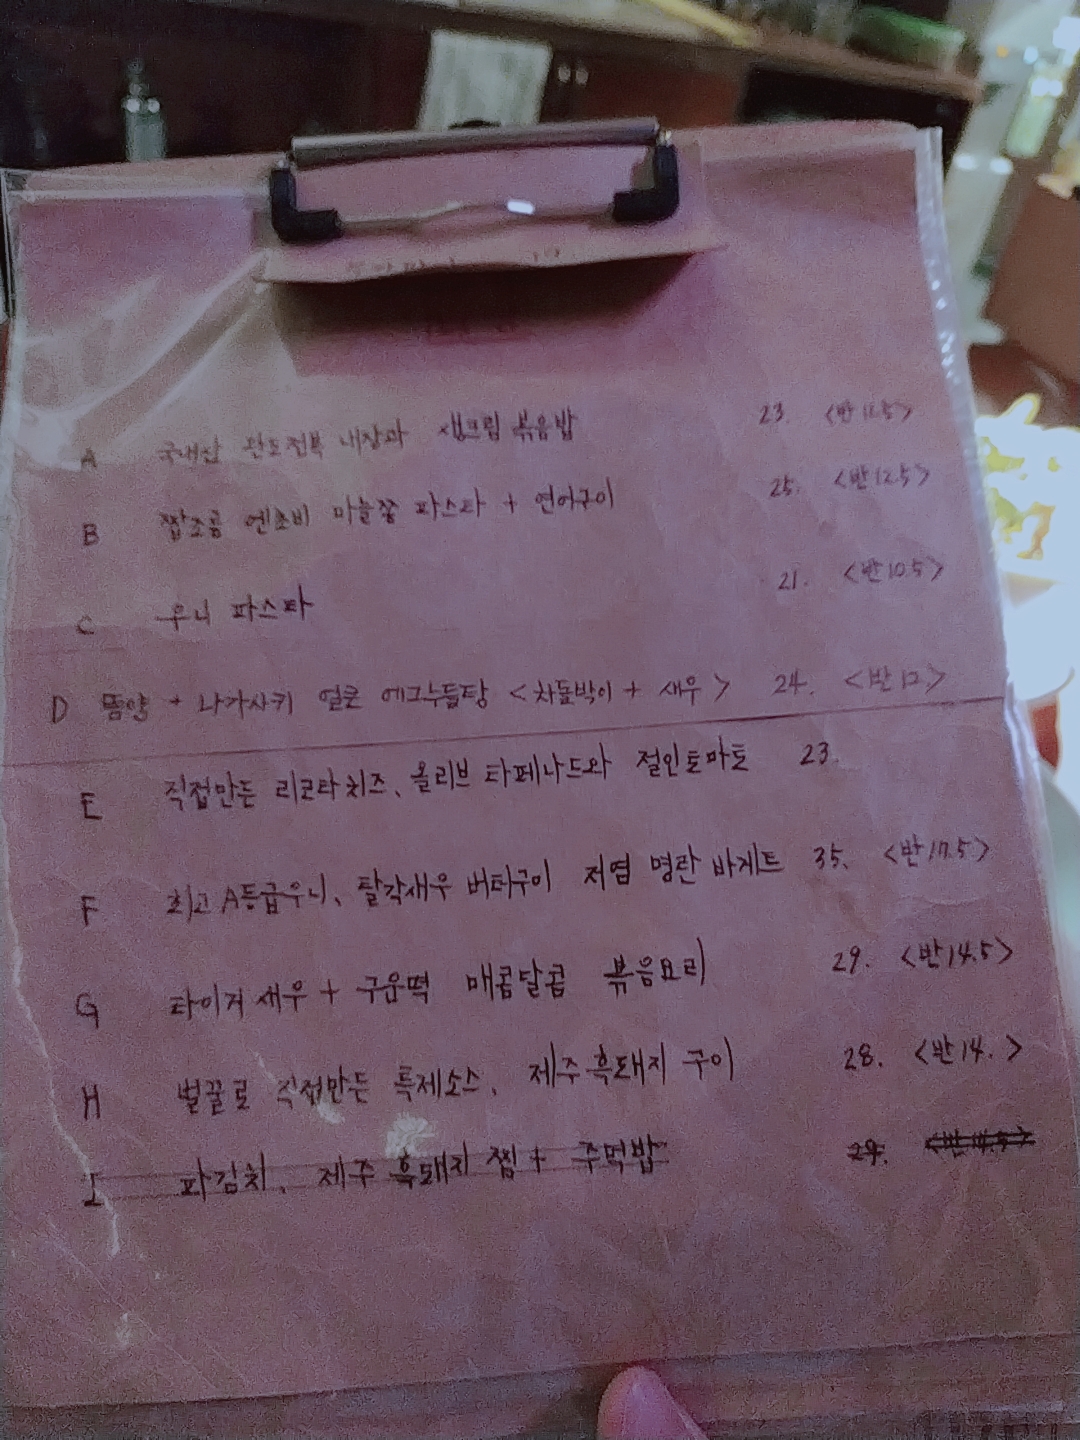 A 국내산 완도전복 내장과 생크림 볶음밥 23. <반 11.5>
B 짭조름 엔초비 마늘쫑 파스타 + 연어구이 25. <반 12.5>
C 우니 파스타 21. <반 10.5>
D 똠양 + 나가사키 얼큰 에그누들탕 <차돌박이 + 새우> 24. <반 12>
E 직접만든 리코타치즈, 올리브 타페나드와 절인토마토 23.
F 최고 A등급우니, 탈각새우 버터구이 저염 명란 바게트 35. <반 17.5>
G 타이거 새우 + 구운떡 매콤달콤 볶음요리 29. <반 14.5>
H 벌꿀로 직접만든 특제소스, 제주흑돼지 구이 28. <반 14. >
I 파김치, 제주 흑돼지 찜 + 주먹밥 29.